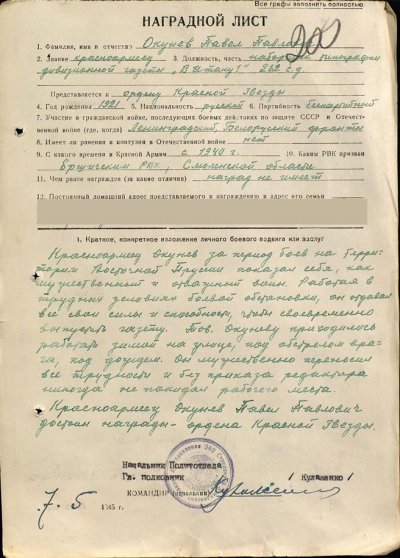 Все графы заполнять полностью
НАГРАДНОЙ ЛИСТ
1. Фамилия, имя и отчество Окунев Павел Павлович
2. Звание красноармеец 3. Должность, часть наборщик типографии
дивизионной газеты „В атаку!" 282 с.д.
Представляется к ордену Красной Звезды
4. Год рождения 1921 5. Национальность русский 6. Партийность беспартийный
7. Участие в гражданской войне, последующих боевых действиях по защите СССР и Отечест-
венной войне (где, когда) Ленинградский, Белорусский фронты
8. Имеет ли ранения и контузии в Отечественной войне нет
9. С какого времени в Красной Армии с 1940 г. 10. Каким РВК призван
Ершичским РВК, Смоленской области
11. Чем ранее награжден (за какие отличия) наград не имеет
12. Постоянный домашний адрес представляемого к награждению и адрес его семьи
1. Краткое, конкретное изложение личного боевого подвига или заслуг
Красноармеец Окунев за период боев на терри-
тории Восточной Пруссии показал себя, как
мужественный и отважный воин. Работая в
трудных условиях боевой обстановки, он отдавал
все свои силы и способности, чтобы своевременно
выпустить газету. Тов. Окуневу приходилось
работать зимой на улице, под обстрелом вра-
га, под дождем. Он мужественно переносил
все трудности и без приказа редактора
никогда не покидал рабочего места.
Красноармеец Окунев Павел Павлович
достоин награды - ордена Красной Звезды.
Начальник Политотдела
Гв. полковник / Кулаженко /
КОМАНДИР (начальник)
7. 5 1945 г.